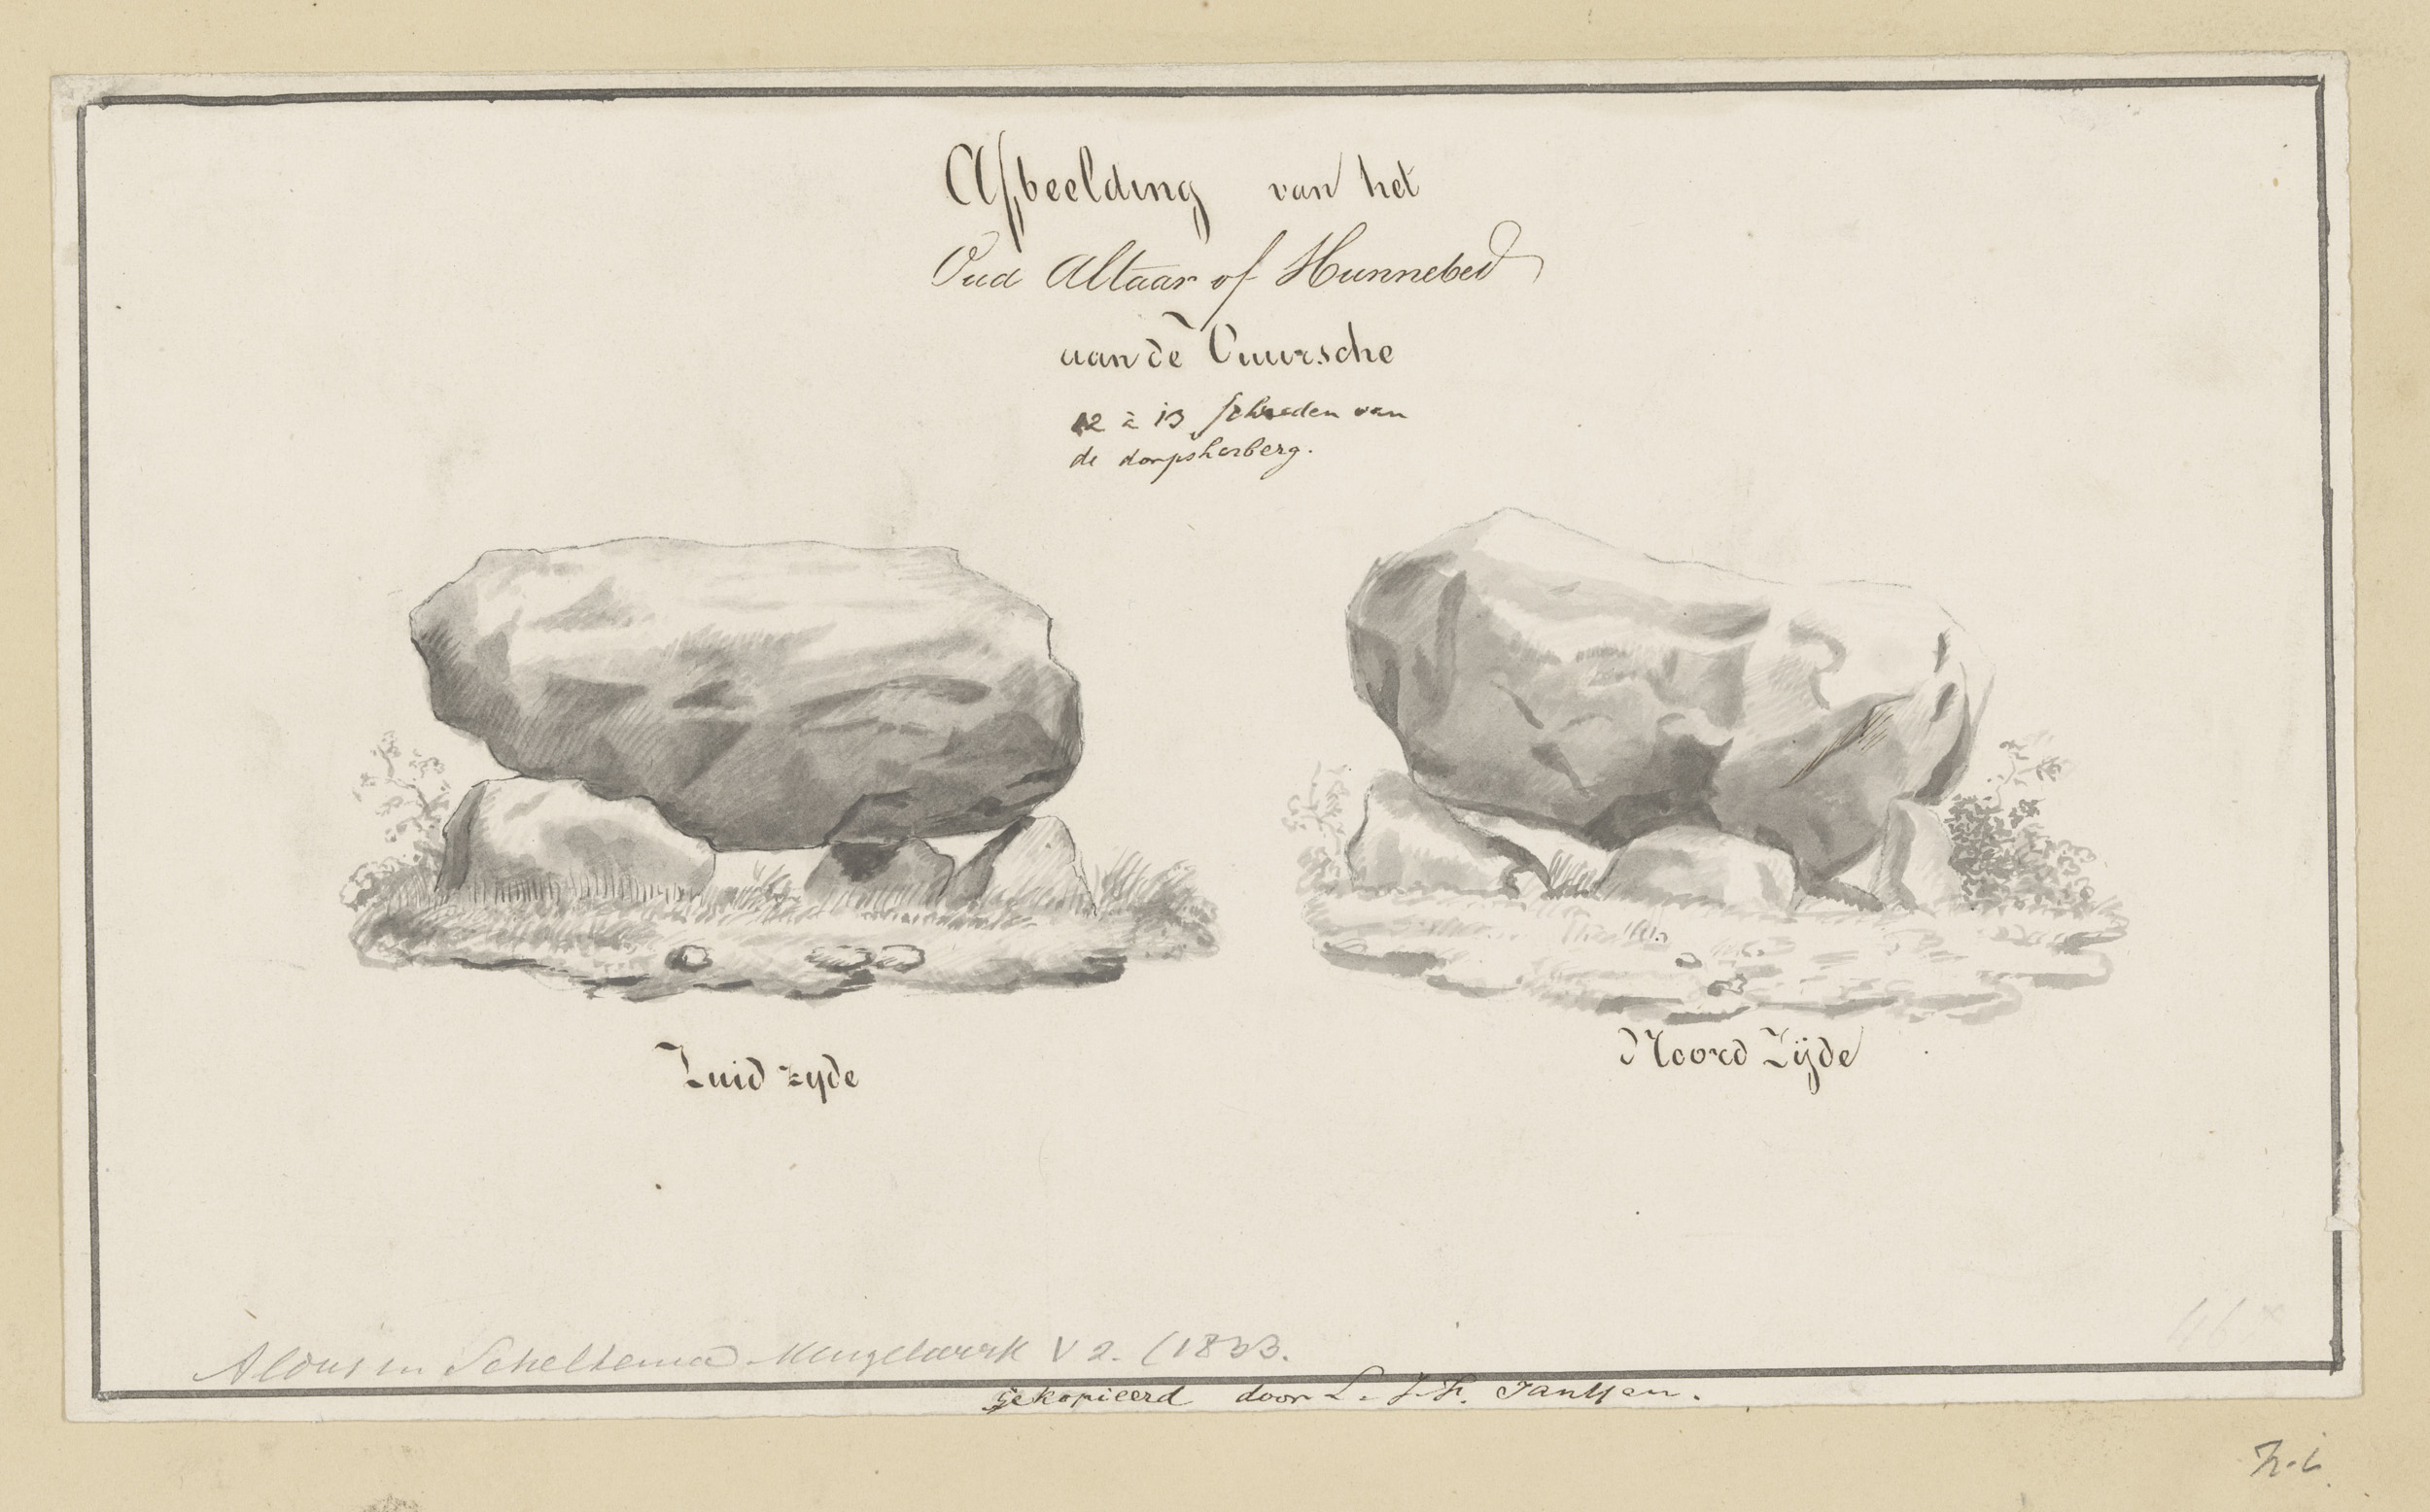 Afbeelding van het
Oud Altaar of Hunnebed
aan de Vuursche
12 à 13 schreden van
de dorpsherberg.
Zuid zyde
Noord Zijde
Aldus in Scheltema Mengelwerk V 2. (1833.
gekopieerd door L. J. F. Janssen.